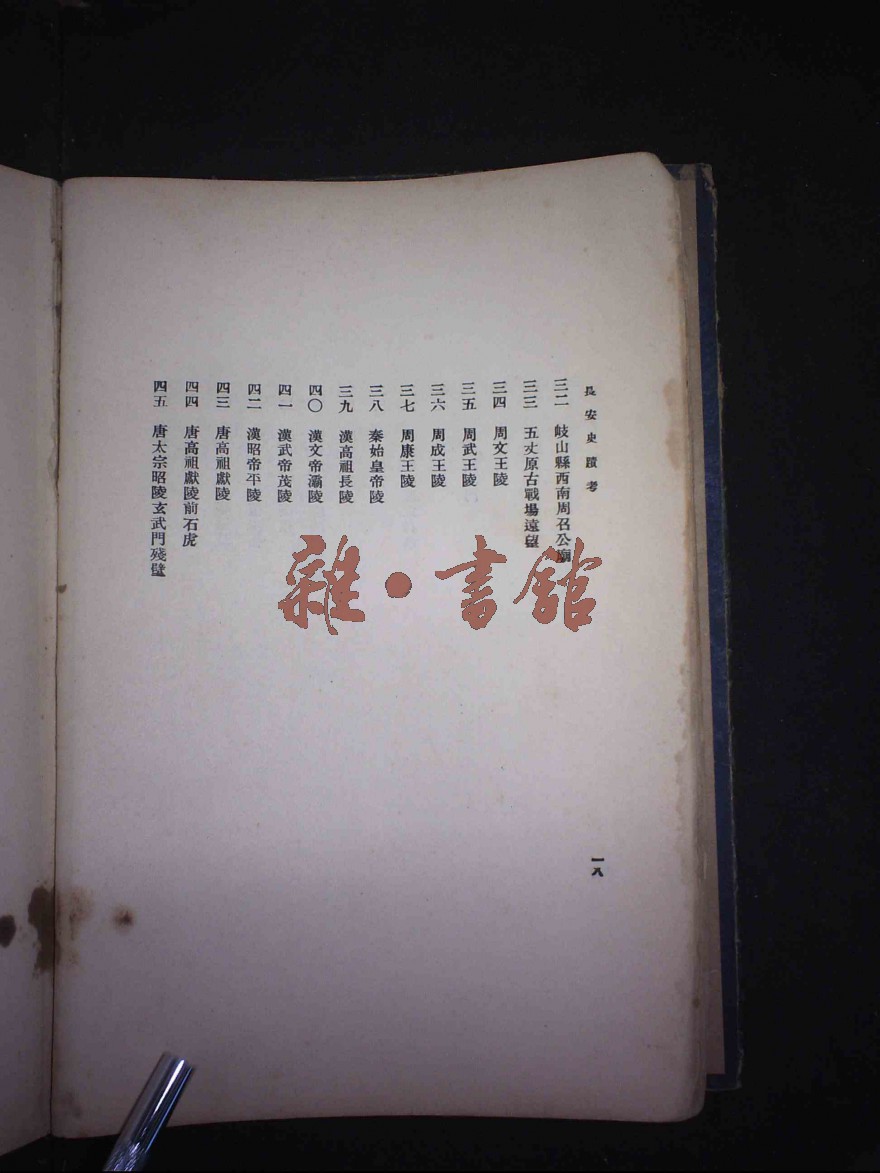 長安史蹟考
三二 岐山縣西南周召公廟
三三 五丈原古戰場遠望
三四 周文王陵
三五 周武王陵
三六 周成王陵
三七 周康王陵
三八 秦始皇帝陵
三九 漢高祖長陵
四〇 漢文帝灞陵
四一 漢武帝茂陵
四二 漢昭帝平陵
四三 唐高祖獻陵
四四 唐高祖獻陵前石虎
四五 唐太宗昭陵玄武門殘壁
一八
雜·書館